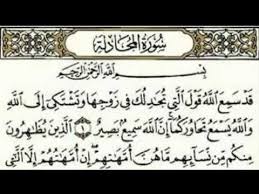 سُورَةُ المُجَادلَةِ
بِسْمِ اللَّهِ الرَّحْمَٰنِ الرَّحِيمِ
قَدْ سَمِعَ اللَّهُ قَوْلَ الَّتِي تُجَادِلُكَ فِي زَوْجِهَا وَتَشْتَكِي إِلَى اللَّهِ
وَاللَّهُ يَسْمَعُ تَحَاوُرَكُمَا إِنَّ اللَّهَ سَمِيعٌ بَصِيرٌ ۝١ الَّذِينَ يُظَاهِرُونَ
مِنكُم مِّن نِّسَائِهِم مَّا هُنَّ أُمَّهَاتِهِمْ إِنْ أُمَّهَاتُهُمْ إِلَّا اللَّائِي